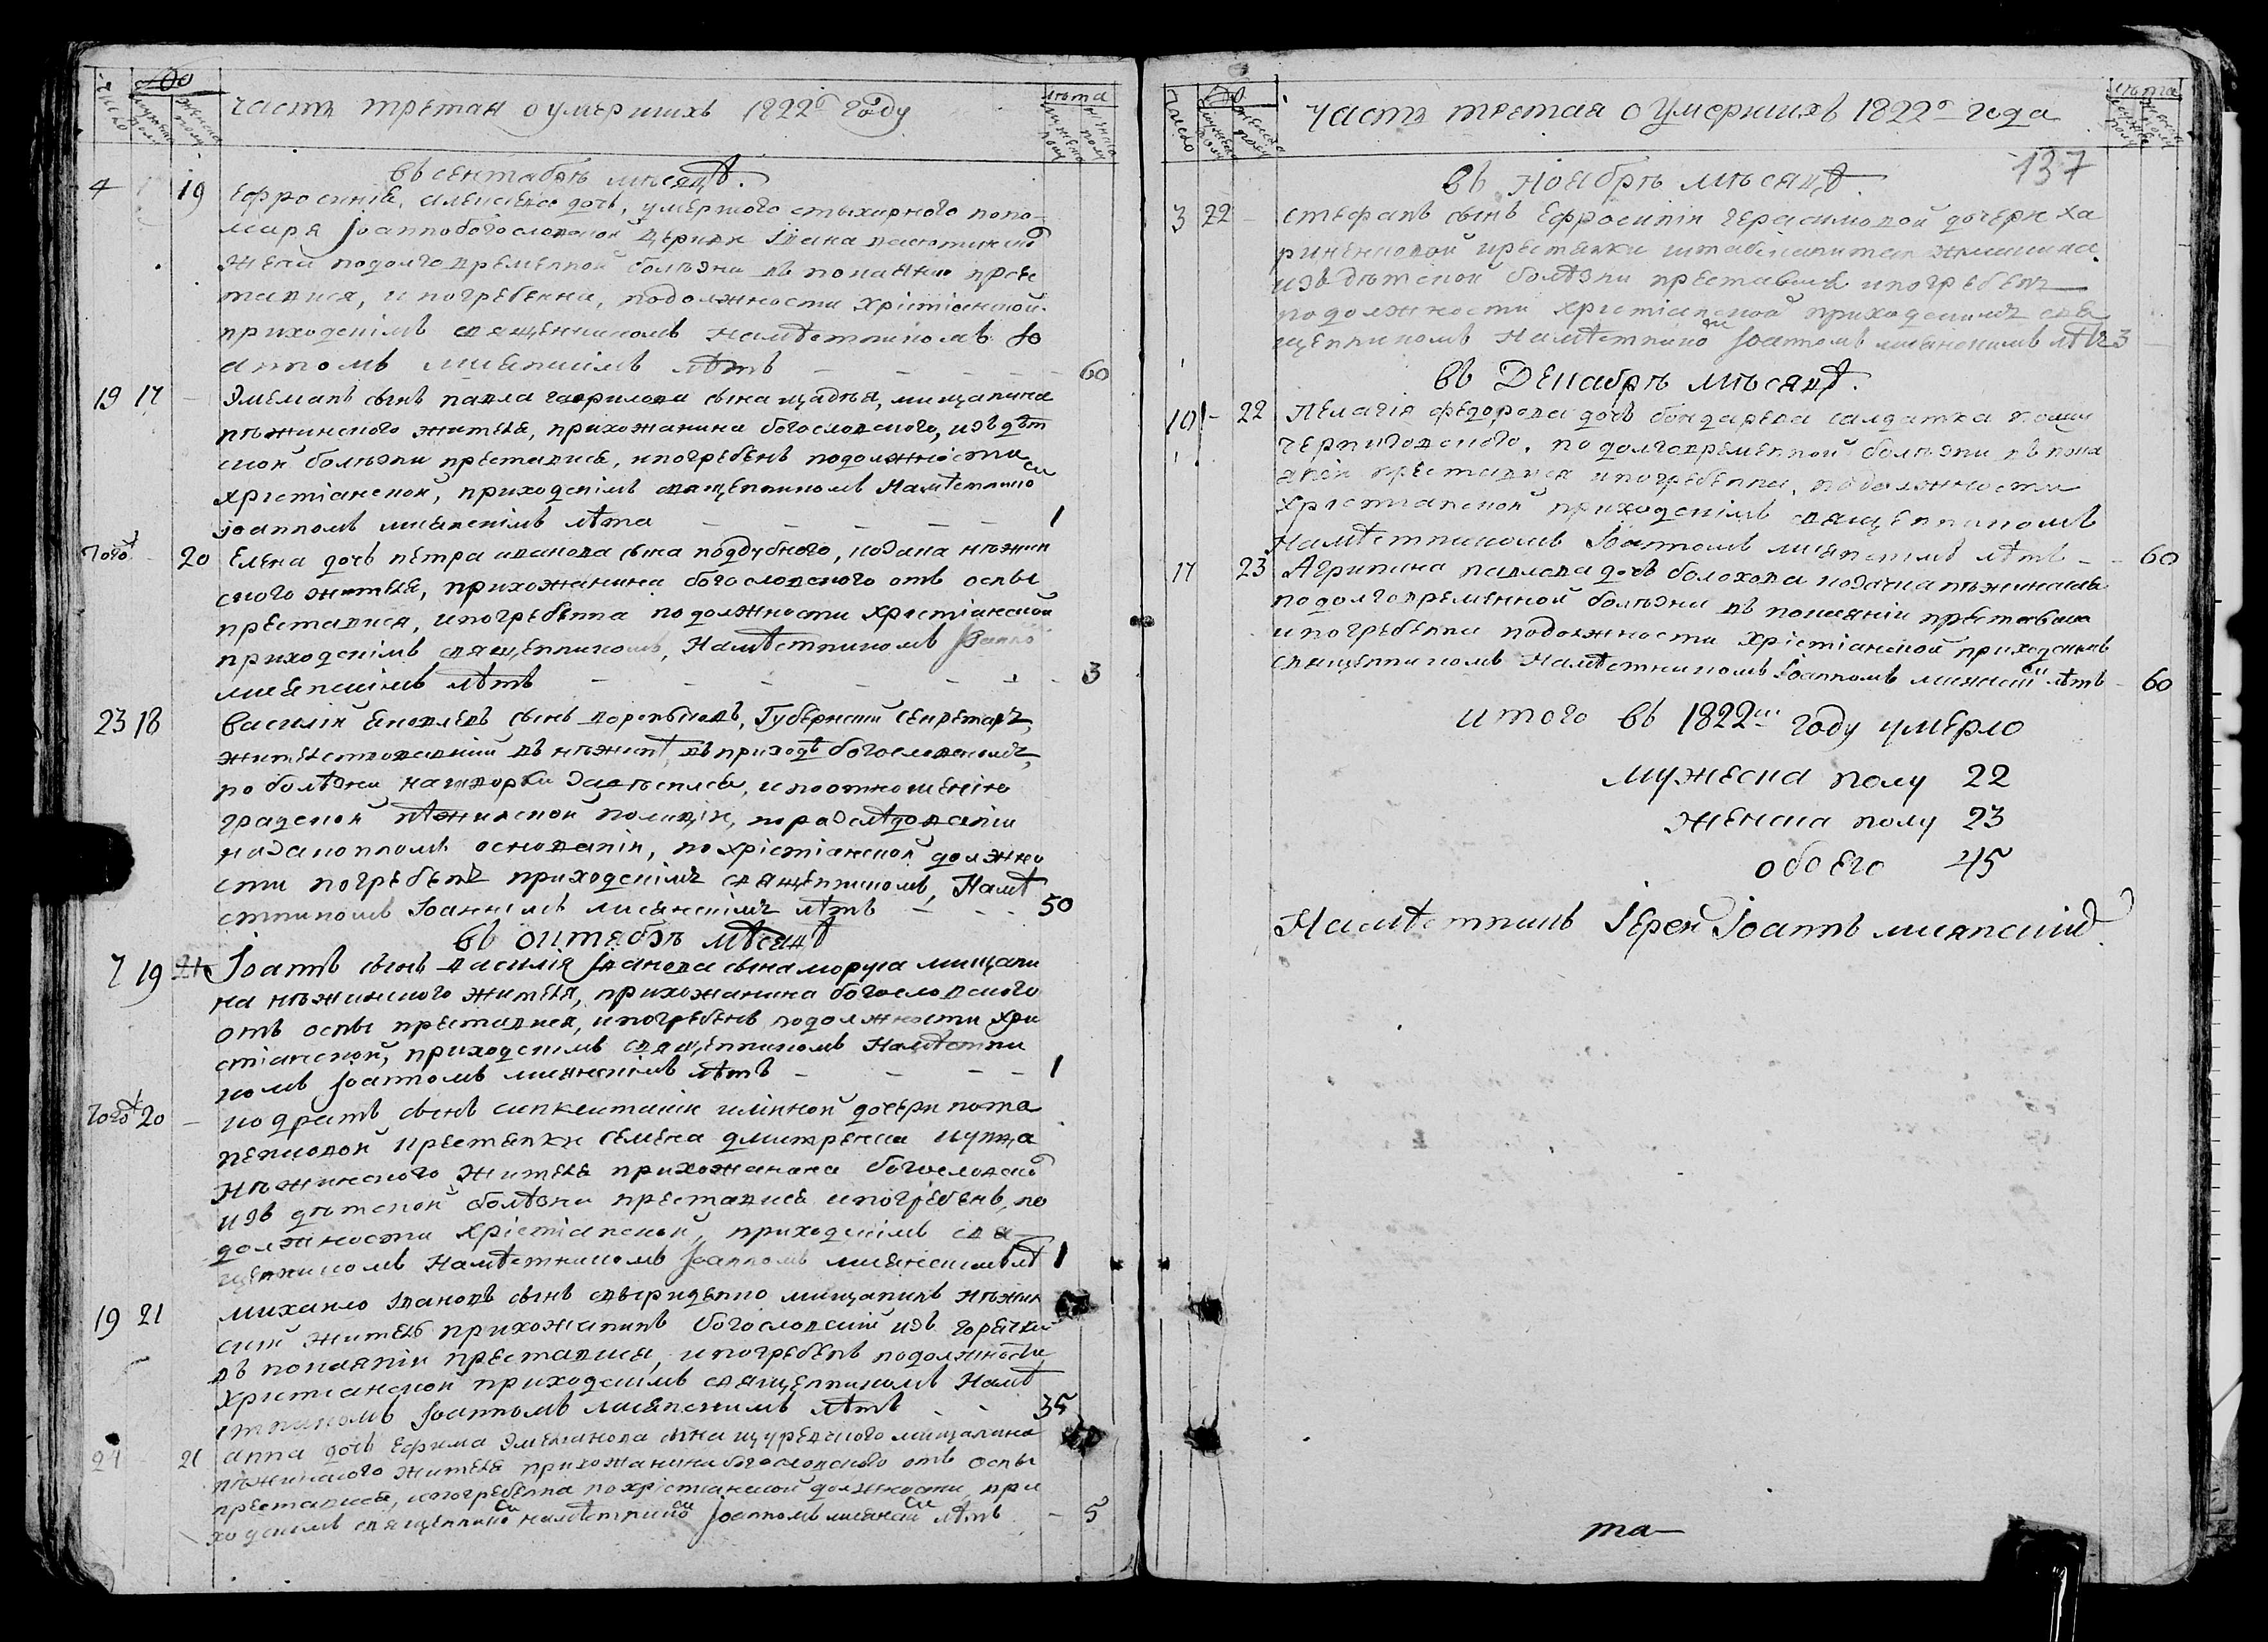 Число
мужеска полу
женска полу
часть третая о умершихъ 1822го году
лѣта
мужеска полу
женска полу
въ сентябрѣ мѣсяцѣ.
4 19 Ефросиніа, Алексѣева дочь, умершого стыхарного поно-
маря Іоаннобогословской церкви Івана
жена подолговременной болѣзни въ покаянию прес
тавися, и погребенна, подолжности Хрістіанской
приходскімъ священникомъ Намѣстникомъ Іо
анномъ лисянскімъ лѣтъ 60
19 17 Эмеланъ сынъ павла гаврилова сына щадѣя, мищанина
нѣжинского жителя, прихожанина богословского, изъ дѣт
ской болѣзни преставися, и погребенъ подолжности
хрістіанской, приходскімъ священникомъ Намѣстнико
іоанномъ лисянскімъ лѣта 1
Того 20 Елена дочь петра иванова сына поддубного, козака нѣжин
ского жителя, прихожанина богословского отъ оспы
преставися, и погребенна подолжности хрістіанской
приходскімъ священникомъ, Намѣстникомъ Іоанно
лисянскімъ лѣтъ 3
23 18 Василій яковлевъ сынъ Губернскій Секретаръ,
жителствовавшій въ нѣжинѣ, въ приходѣ богословскомъ,
по болѣзни и поотношенію
градской нѣжинской полиціи, по разслѣдованіи
назаконномъ основаніи, по хрістіанской должно
сти погребенъ приходскімъ священникомъ, Намѣ
стникомъ Іоанномъ лисянскімъ лѣтъ 50
въ октябрѣ мѣсяцѣ
7 19 Іоаннъ сынъ василія Іванова сына моруга мищани
на нѣжинского жителя, прихожанина богословского
отъ оспы преставися, и погребенъ подолжности хри
стіанской, приходскімъ священникомъ Намѣстни
комъ Іоанномъ лисянскімъ лѣтъ 1
Того 20 кодратъ сынъ дочери пота
пенковой крестянки Семена дмитренка купца
нѣжинского жителя прихожанина богословско
изъ дѣтской болѣзни преставися и погребенъ, по
должности Хрістіанской, приходскімъ свя
щенникомъ Намѣстникомъ Іоанномъ лисянскимъ лѣ 1
19 21 михаило Івановъ сынъ свыриденко мищанинъ нѣжин
скій житель прихожанинъ богословскій изъ горячки
въ покаяніи преставися, и погребенъ подолжности
Христианской приходскімъ священникомъ Намѣ
стникомъ Іоанномъ лисянскимъ лѣтъ 35
21 21 анна дочь Ефима Эмелянова сына щуревского мищанина
нѣжинского жителя прихожанина богословского отъ оспы
преставися, и погребенна по хрістіанской должности, при
ходскимъ священнико намѣстнико Іоанномъ лисянски лѣтъ 5
Число
мужеска полу
женска полу
часть третая о Умершихъ 1822го года
лѣта
мужеска полу
женска полу
137
въ Ноябрѣ мѣсяцѣ.
3 22 стефанъ сынъ Ефросиніи герасимовой дочери ха
крестянки штабскапитан
изъ дѣтской болѣзни преставися и погребенъ
подолжности хрістіанской приходскимъ свя
щенникомъ Намѣстнико Іоанномъ лисянскимъ лѣтъ 3
въ Декабрѣ мѣсяцѣ.
10 22 Пелагія федорова дочь бондарева салдатка полку
черниговского, по долговременной болѣзни въ пока
яніи преставися и погребенна, подолжности
Хрістіанской приходскімъ священникомъ
Намѣстникомъ Іоанномъ лисянскімъ лѣтъ 60
17 23 Агрипина павлова дочь болохова козачка нѣжинская
подолговременной болѣзни въ покаяніи преставися
и погребенна подолжности Хрістіанской приходскимъ
священникомъ Намѣстникомъ Іоанномъ лисянски лѣтъ 60
итого въ 1822мъ году умерло
мужеска полу 22
женска полу 23
обоего 45
Намѣстникъ Іерей Іоаннъ лисянскій
та